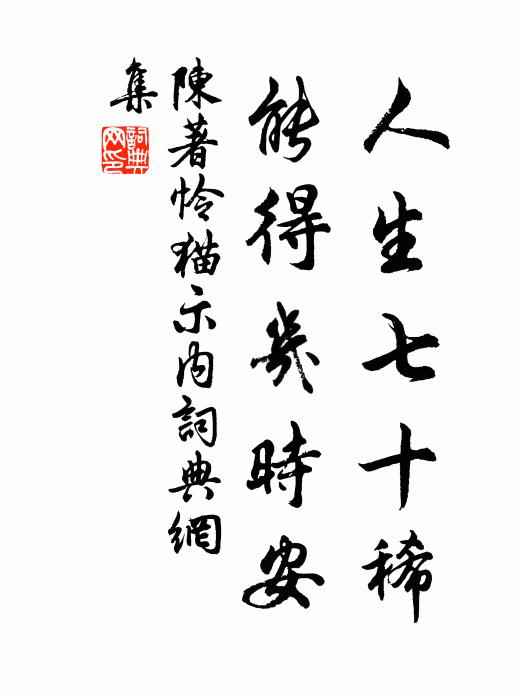 人生七十稀
能得幾時安
陳著怜猫示内詞典網
集
詞典
网印